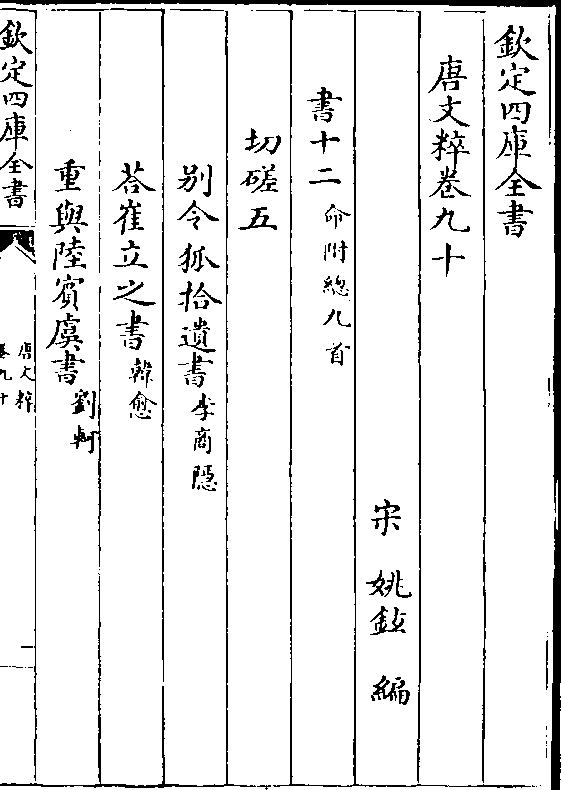 欽定四庫全書
唐文粹卷九十
宋 姚鉉 編
書十二 命附總九首
切磋五
别令狐拾遺書 李商隱
荅崔立之書 韓愈
重與陸賓虞書 劉軻
欽定四庫全書
唐文粹
卷九十
一